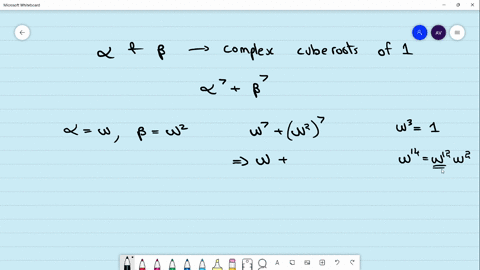 Microsoft Whiteboard
AV
α & β → complex cube roots of 1
α⁷ + β⁷
α = ω, β = ω² ω⁷ + (ω²)⁷ ω³ = 1
⇒ ω + ω¹⁴ = ω¹² ω²